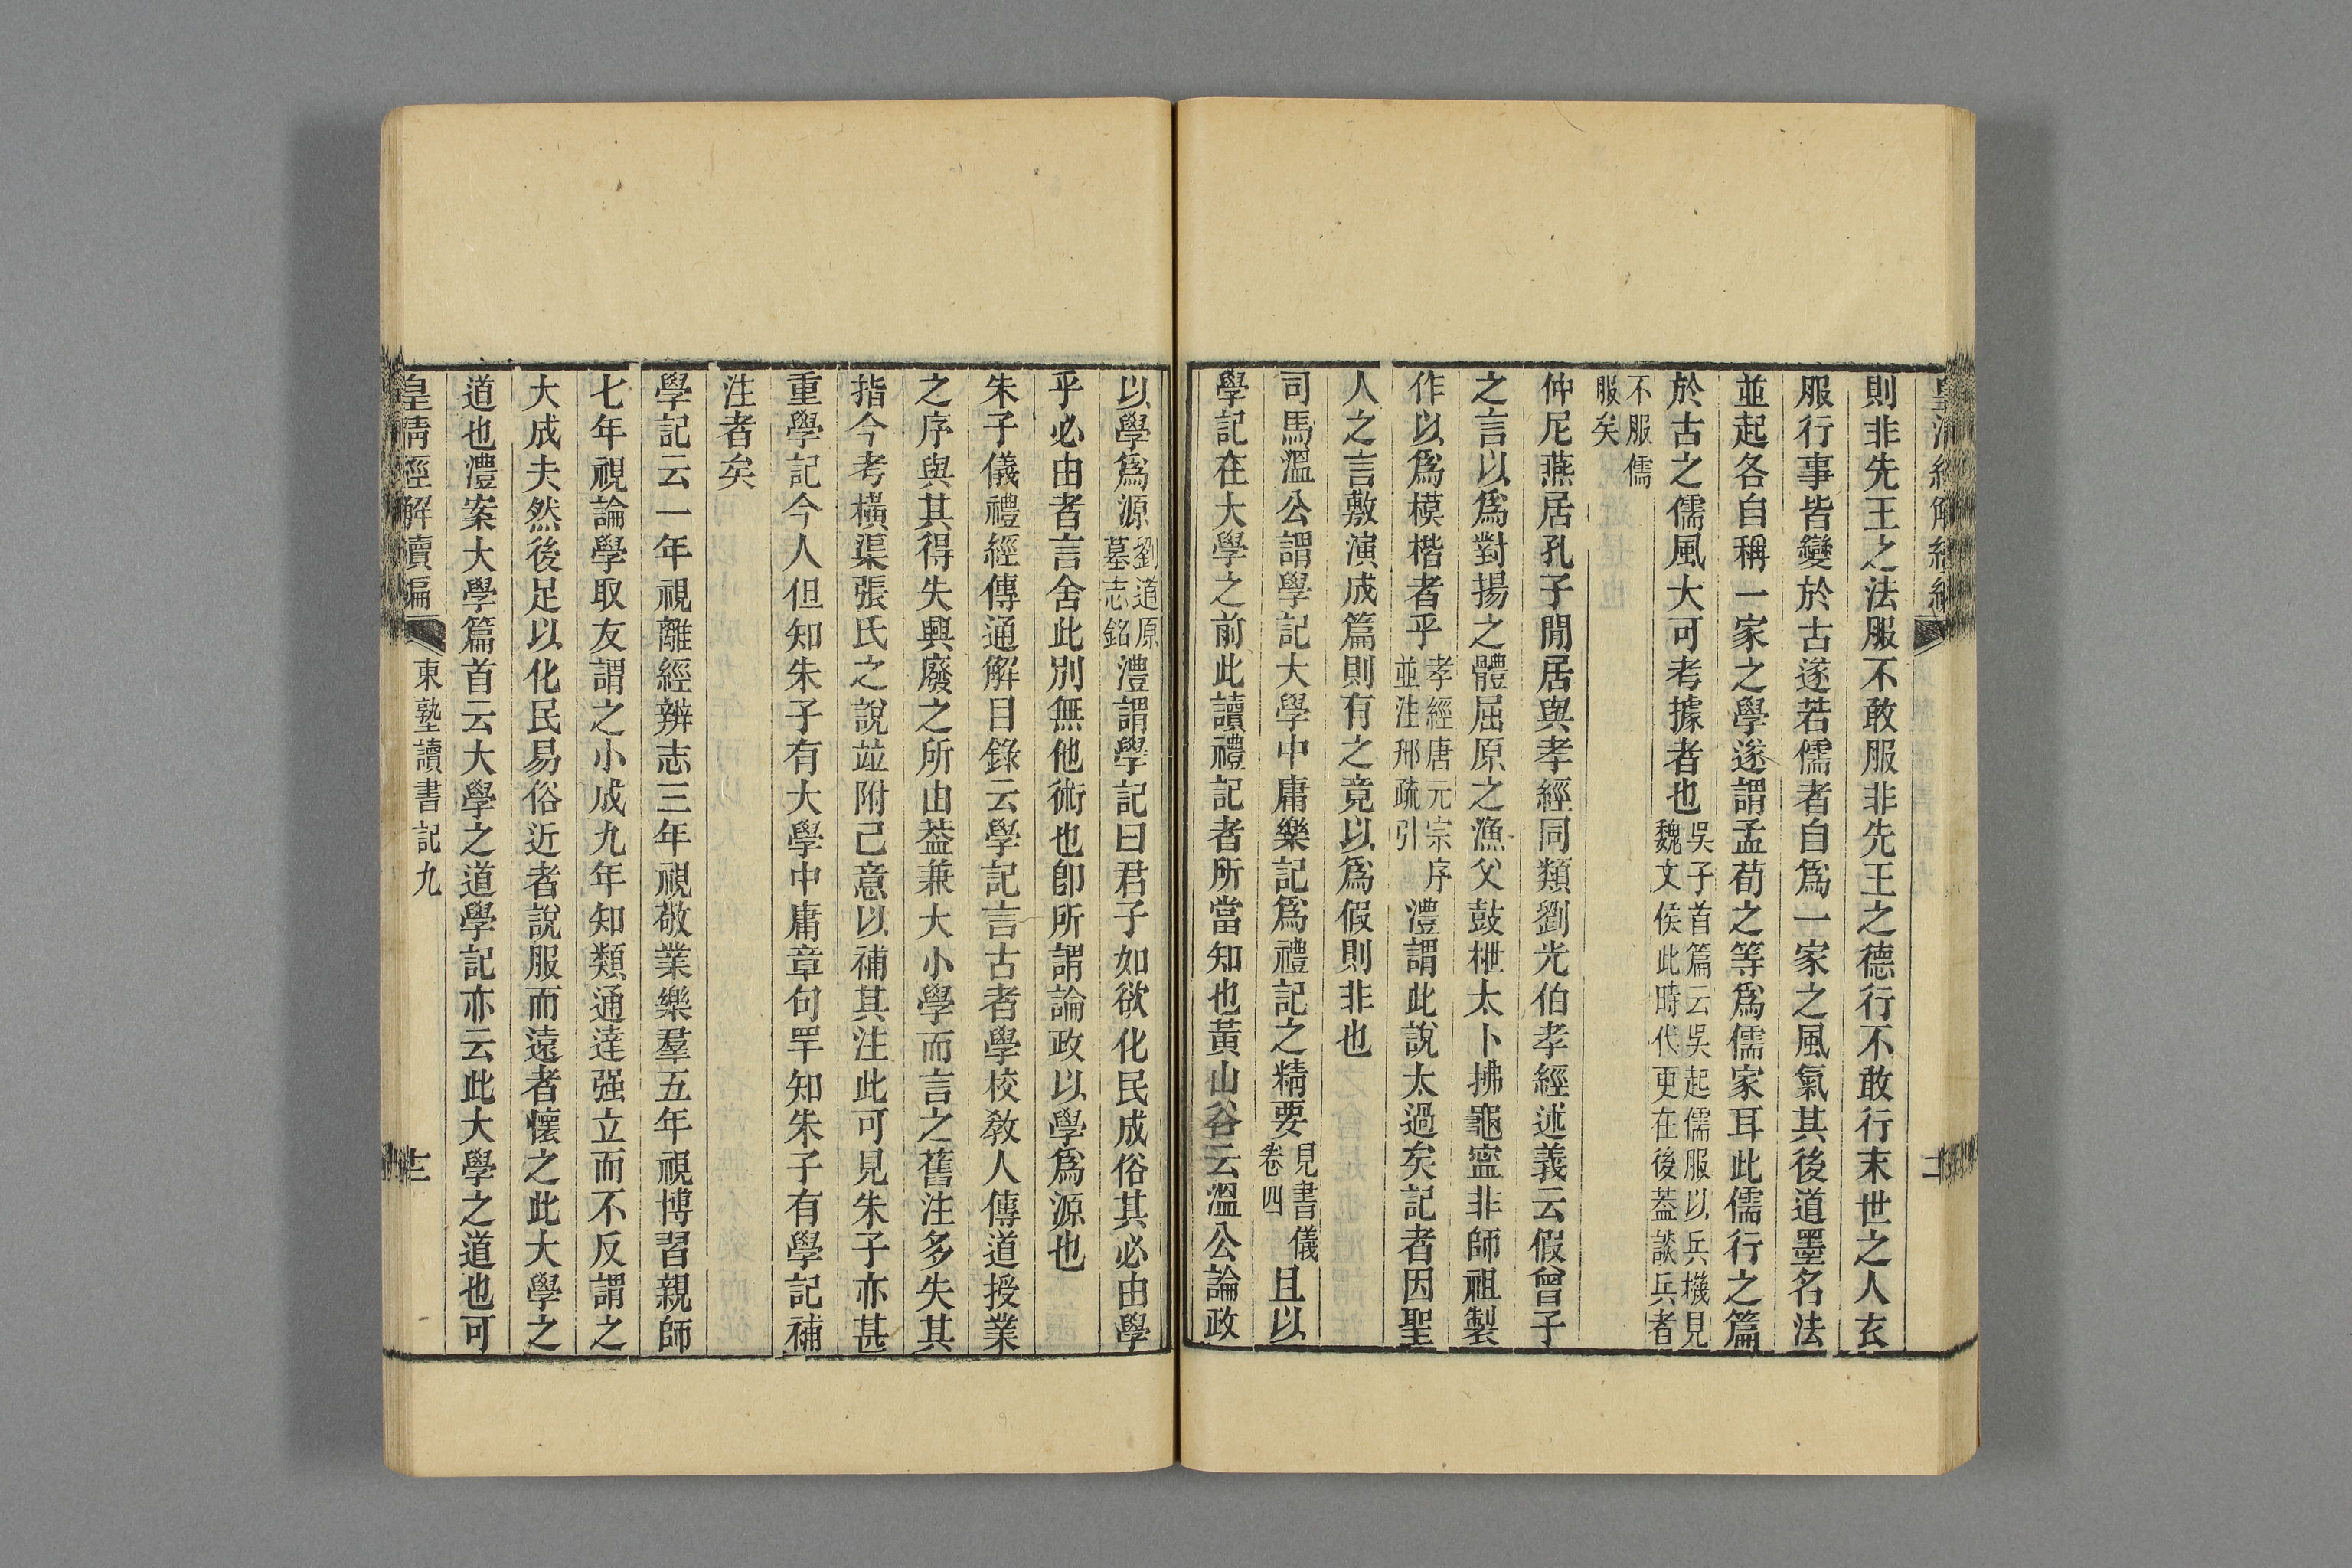 則非先王之法服不敢服非先王之德行不敢行末世之人衣
服行事皆變於古遂若儒者自爲一家之風氣其後道墨名法
並起各自稱一家之學遂謂孟荀之等爲儒家耳此儒行之篇
於古之儒風大可考據者也吳子首篇云吳起儒服以兵機見魏文侯此時代更在後葢談兵者
不服儒服矣
仲尼燕居孔子閒居與孝經同類劉光伯孝經述義云假曾子
之言以爲對揚之體屈原之漁父鼓枻太卜拂龜寍非師祖製
作以爲模楷者乎孝經唐元宗序並注邢疏引澧謂此說太過矣記者因聖
人之言敷演成篇則有之竟以爲假則非也
司馬溫公謂學記大學中庸樂記爲禮記之精要見書儀卷四且以
學記在大學之前此讀禮記者所當知也黃山谷云溫公論政
以學爲源劉道原墓志銘澧謂學記曰君子如欲化民成俗其必由學
乎必由者言舍此別無他術也卽所謂論政以學爲源也
朱子儀禮經傳通解目錄云學記言古者學校敎人傳道授業
之序與其得失興廢之所由葢兼大小學而言之舊注多失其
指今考橫渠張氏之說並附己意以補其注此可見朱子亦甚
重學記今人但知朱子有大學中庸章句罕知朱子有學記補
注者矣
學記云一年視離經辨志三年視敬業樂羣五年視博習親師
七年視論學取友謂之小成九年知類通達强立而不反謂之
大成夫然後足以化民易俗近者說服而遠者懷之此大學之
道也澧案大學篇首云大學之道學記亦云此大學之道也可
皇淸經解續編 東塾讀書記九